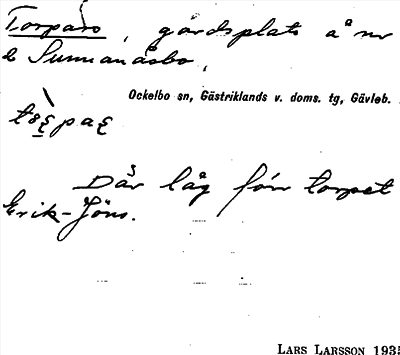 Torpars, gårdsplats å nr
2 Sunnanåsbo,
Ockelbo sn, Gästriklands v. doms. tg, Gävleb.
Där låg förr torpet
Erik-Jöns.
LARS LARSSON 1935